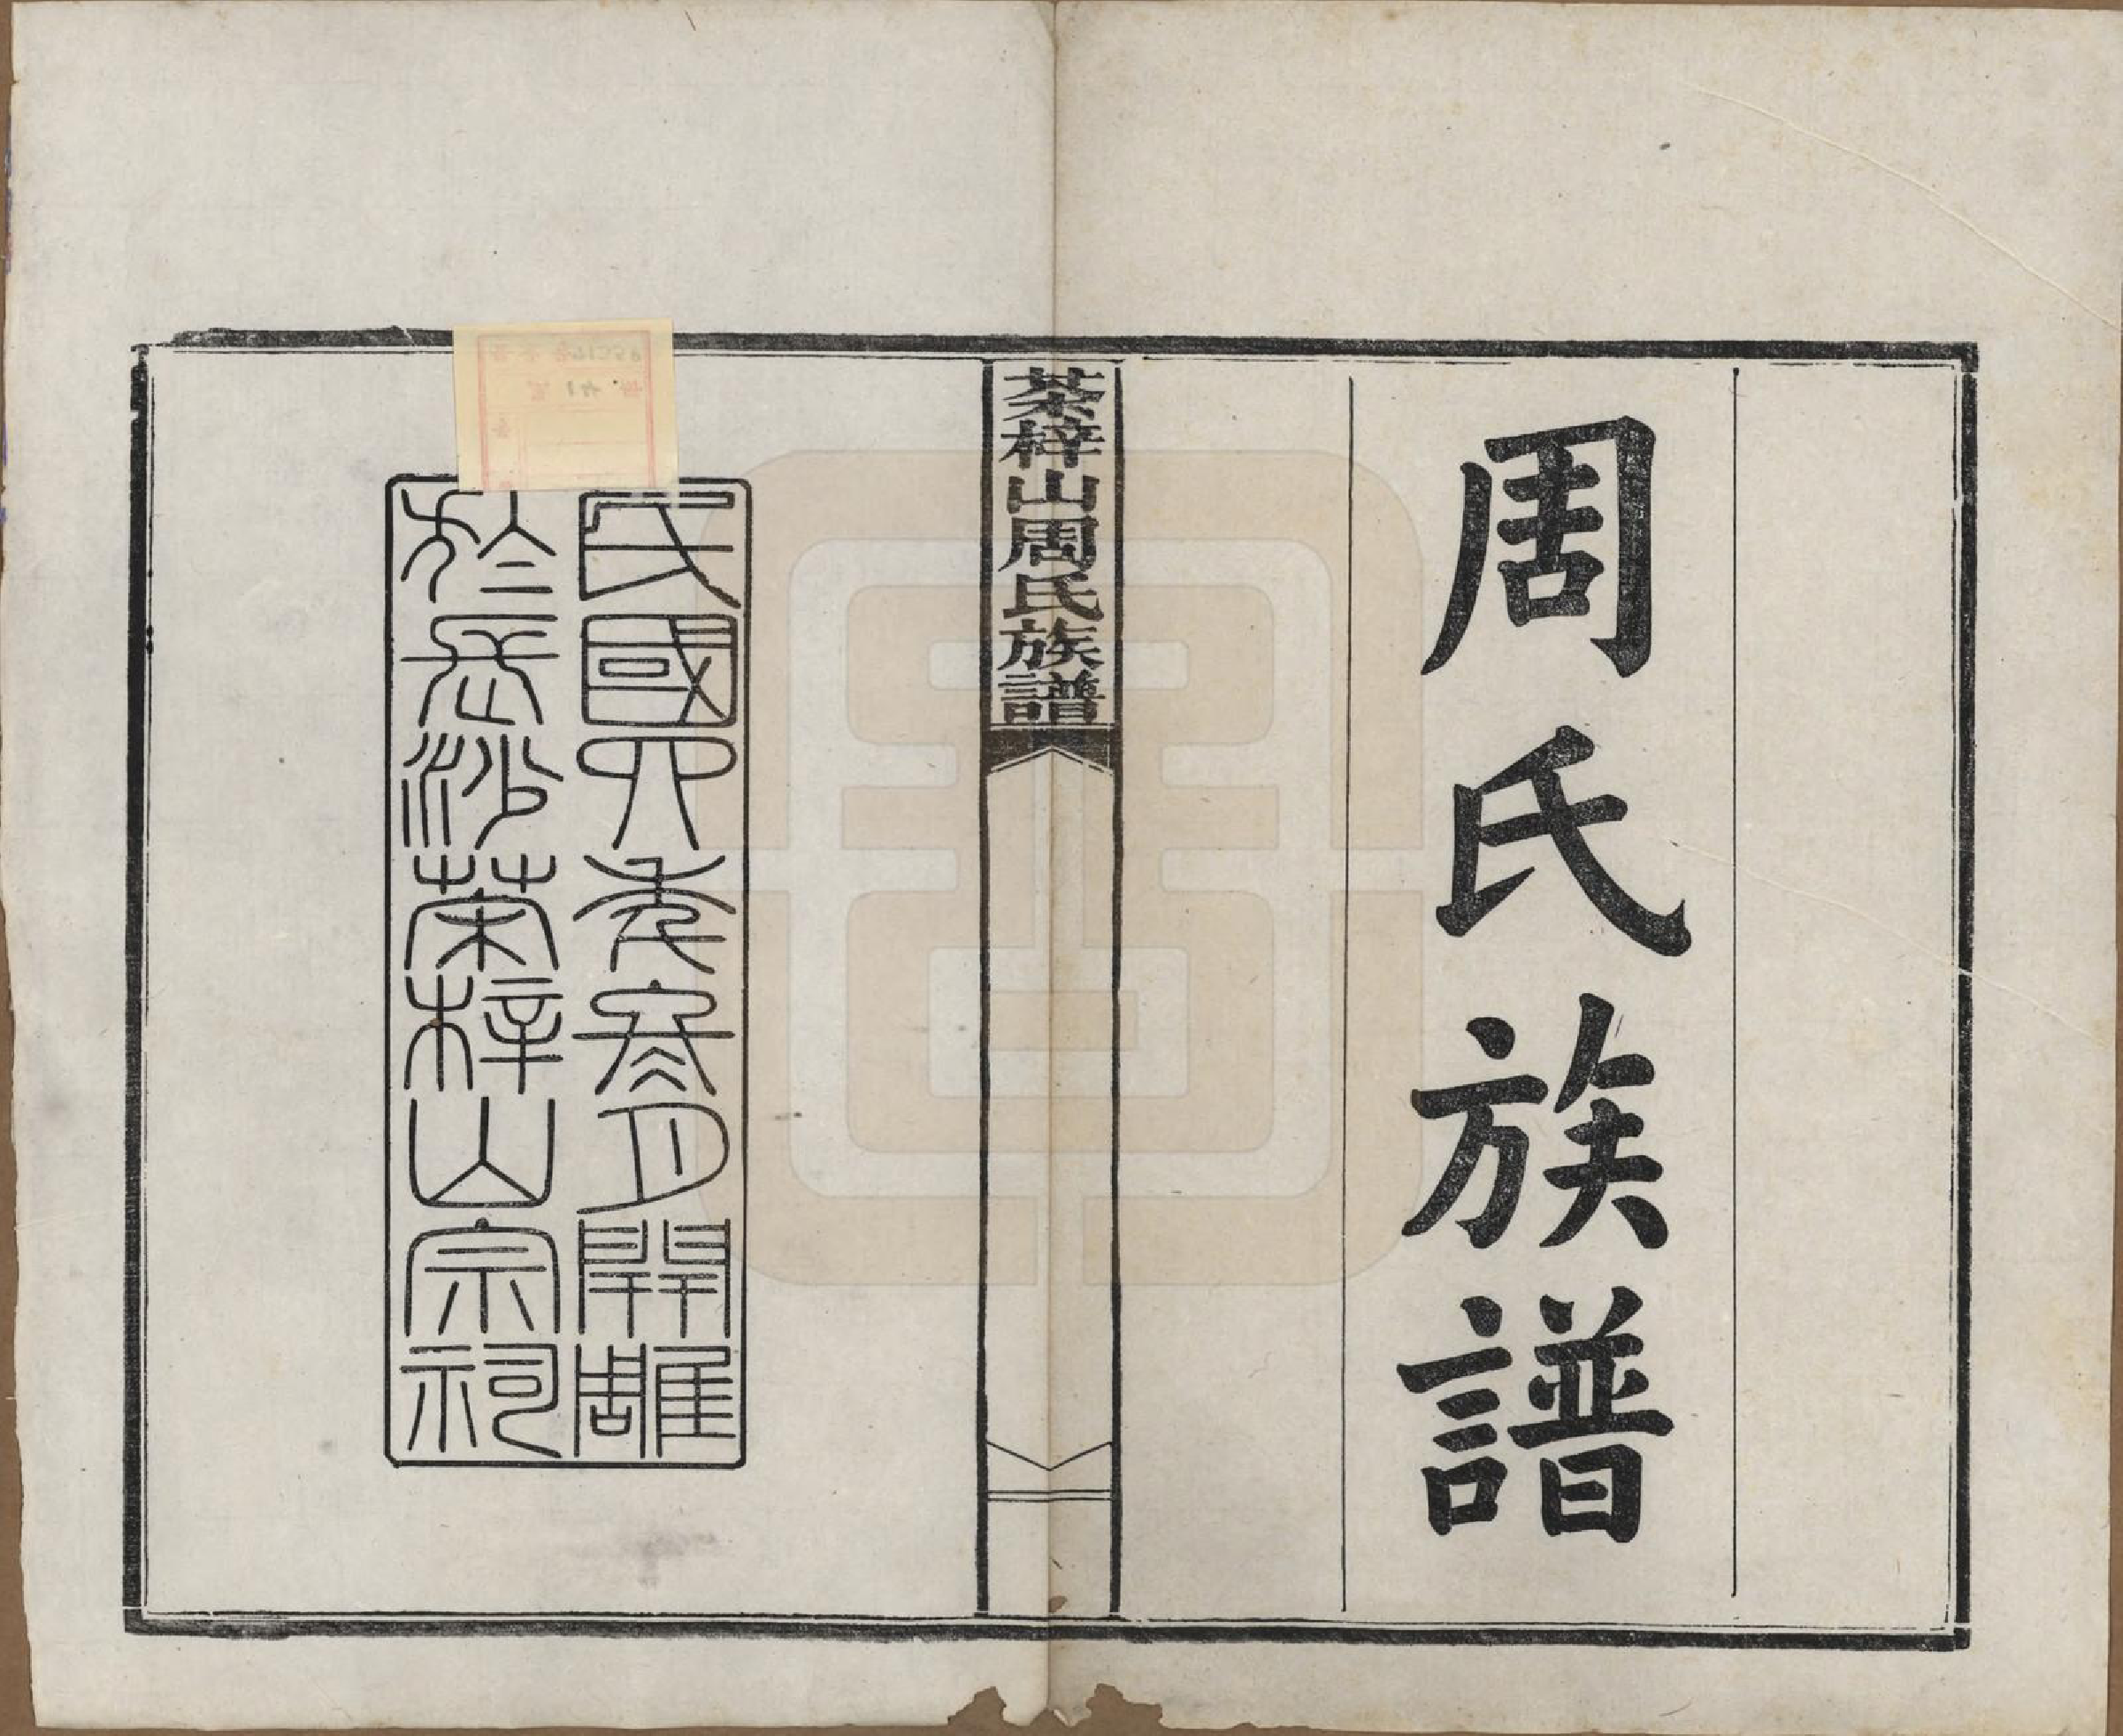 周氏族譜
茶梓山周氏族譜
民國四年參月開雕
於長沙茶梓山宗祠